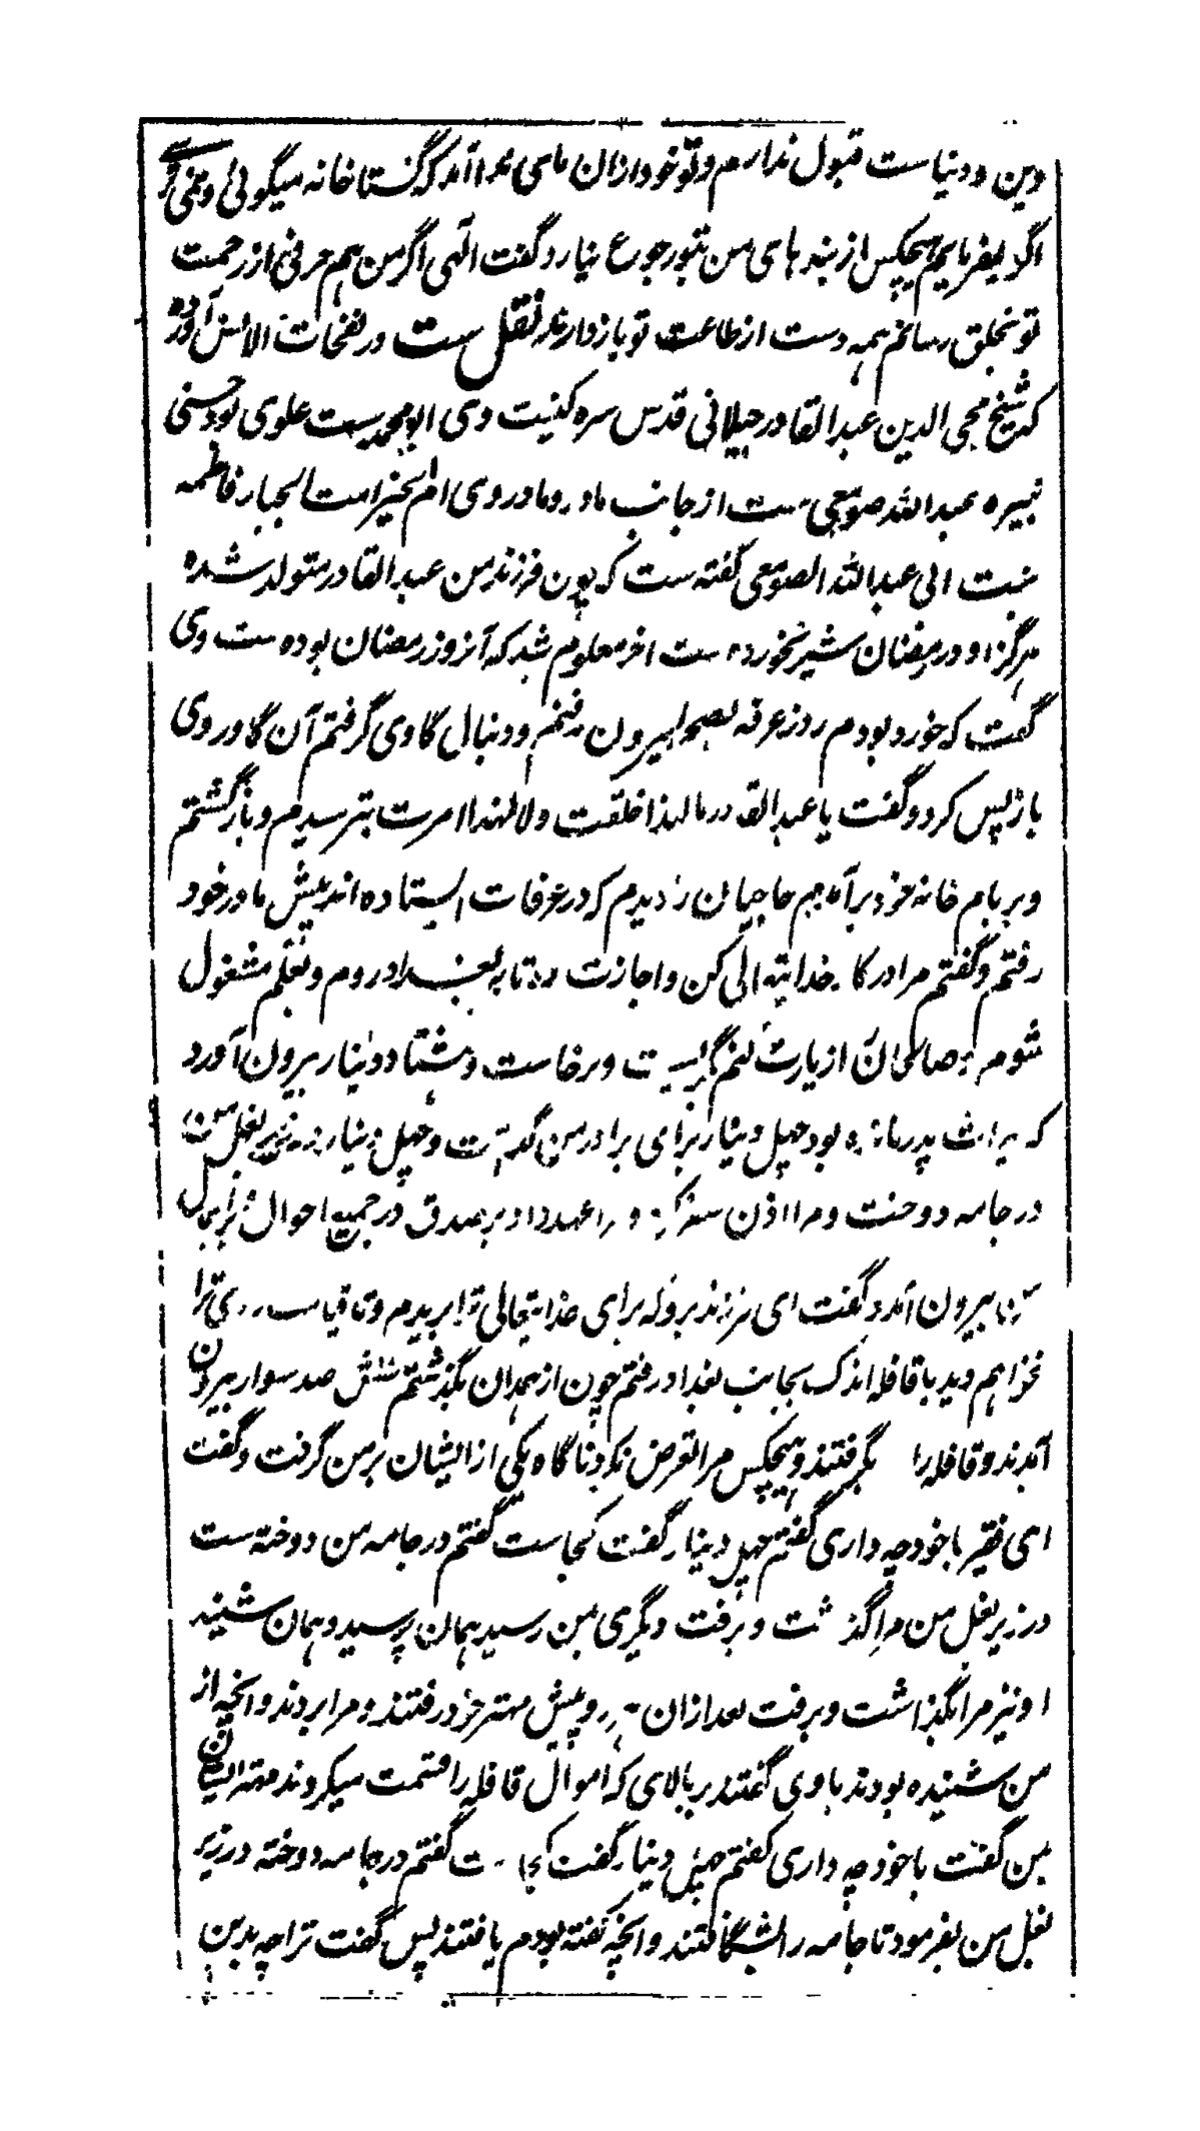 دین و دنیاست قبول ندارم و تو خود ازان ما سی گستاخانه میگوئی و نمی ترسی
اگر بفرمایم هیچکس از بنده های من بتو رجوع نیارد گفت الهی اگر من هم حرفی از رحمت
تو بخلق رسانم همه دست از طاعت تو باز دارند نقل ست در نفحات الانس آورده
که شیخ محی الدین عبد القادر جیلانی قدس سره کنیت وی ابو محمد ست علوی بود حسنی
نبیره عبد الله صومعی ست از جانب مادر و مادر وی ام الخیر امت الجبار فاطمه
بنت ابی عبد الله الصومعی گفته ست که چون فرزند من عبد القادر متولد شده
هرگز او در رمضان شیر نخورده ست اخر معلوم شد که آنروز رمضان بوده ست وی
گفت که خورد بودم روز عرفه بصحرا بیرون رفتم و دنبال گاوی گرفتم آن گاو روی
باز پس کرد و گفت یا عبد القادر ما لهذا خلقت ولا لهذا امرت بترسیدم و باز گشتم
و بر بام خانه خود برآمدم حاجیان را دیدم که در عرفات ایستاده اند پیش مادر خود
رفتم و گفتم مرا در کار خدایتعالی کن و اجازت ده تا به بغداد روم و بعلم مشغول
شوم و صالحان را زیارت کنم بگریست و برخاست و هشتاد دینار بیرون آورد
که میراث پدر مانده بود چهل دینار برای برادر من گذاشت و چهل دینار در زیر بغل من
در جامه دوخت و مرا اذن سفر کرد و مرا عهد داد بر صدق در جمیع احوال و برای
من بیرون آمد و گفت ای فرزند برو که برای خدایتعالی از تو ببریدم و تا قیامت روی ترا
نخواهم دید با قافله اندک بجانب بغداد رفتم چون از همدان بگذشتم شش صد سوار بیرون
آمدند و قافله را بگرفتند و هیچکس مرا تعرض نکرد ناگاه یکی از ایشان بر من گرفت و گفت
ای فقیر با خود چه داری گفتم چهل دینار گفت کجاست گفتم در جامه من دوخته ست
در زیر بغل من مرا گذاشت و برفت دیگری بمن رسید همان پرسید و همان شنید
او نیز مرا بگذاشت و برفت بعد ازان پیش مهتر خود رفتند و مرا بردند و انچه از
من شنیده بودند باوی گفتند بر بالای که اموال قافله را قسمت میکردند مهتر ایشان
بمن گفت با خود چه داری گفتم چهل دینار گفت کجاست گفتم در جامه دوخته در زیر
بغل من بفرمود تا جامه را بشگافتند و انچه گفته بودم یافتند پس گفت ترا چه بدین